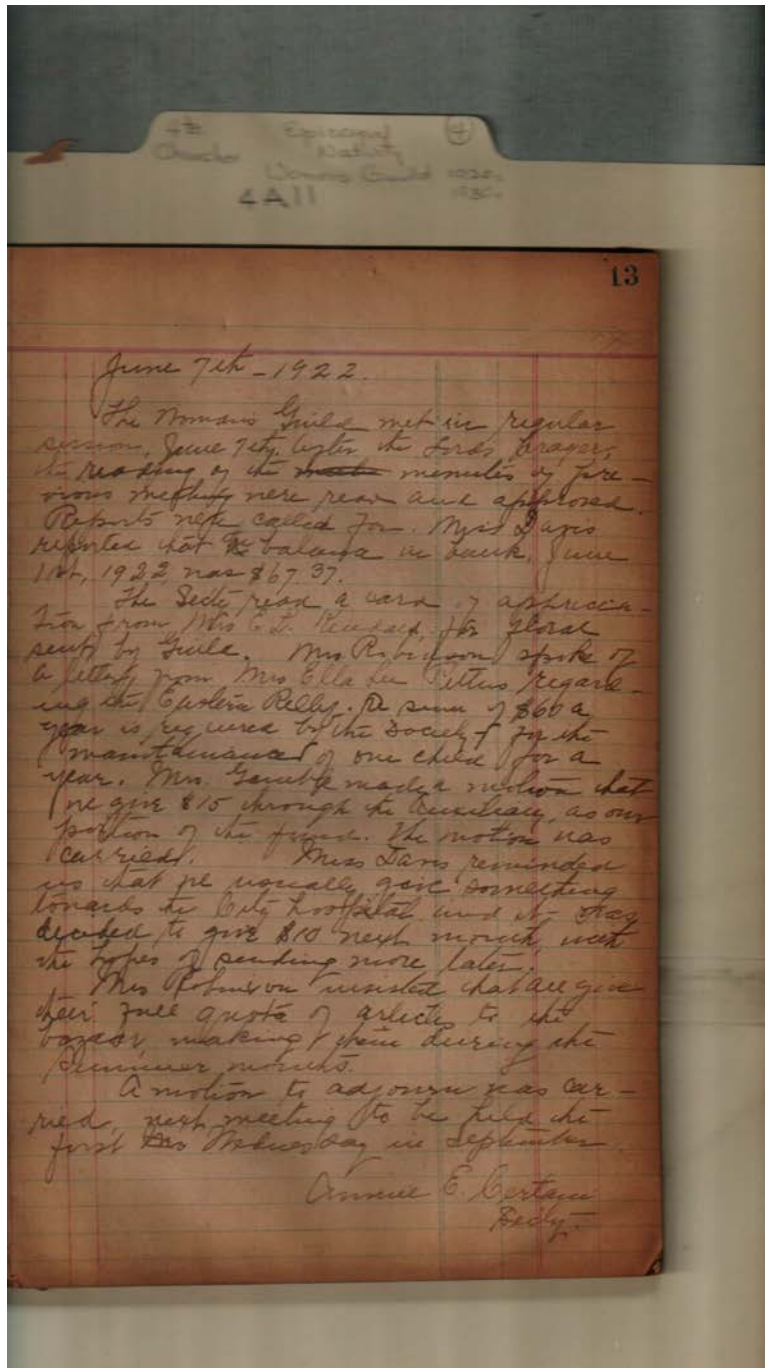 4th Episcopal 4
Church Nativity
Womens Guild 1920s
4A11 1930s
13
June 7th - 1922.
The Woman's Guild met in regular
session, June 7th. After the Lords Prayer,
the reading of the minutes of pre-
vious meeting were read and approved.
Reports were called for. Miss Davis
reported that the balance in bank, June
1st, 1922 was $67.37.
The Secty read a card of apprecia-
tion from Mrs E. L. for floral
sent by Guild. Mrs Robinson spoke of
a letter from Mrs Ella Lee regard-
ing the Eastern Relief. The sum of $60 a
year is required by the Society for the
maintainance of one child for a
year. Mrs. made a motion that
we give $15 through the Auxiliary, as our
portion of the fund. The motion was
carried. Miss Davis reminded
us that we usually give something
towards the City hospital and it was
decided to give $10 next month with
the hopes of sending more later.
Mrs Robinson insisted that all give
their full quota of articles to the
bazaar, making them during the
Summer months.
A motion to adjourn was car-
ried, next meeting to be held the
first Wednesday in September.
Annie E. Certain
Secty.